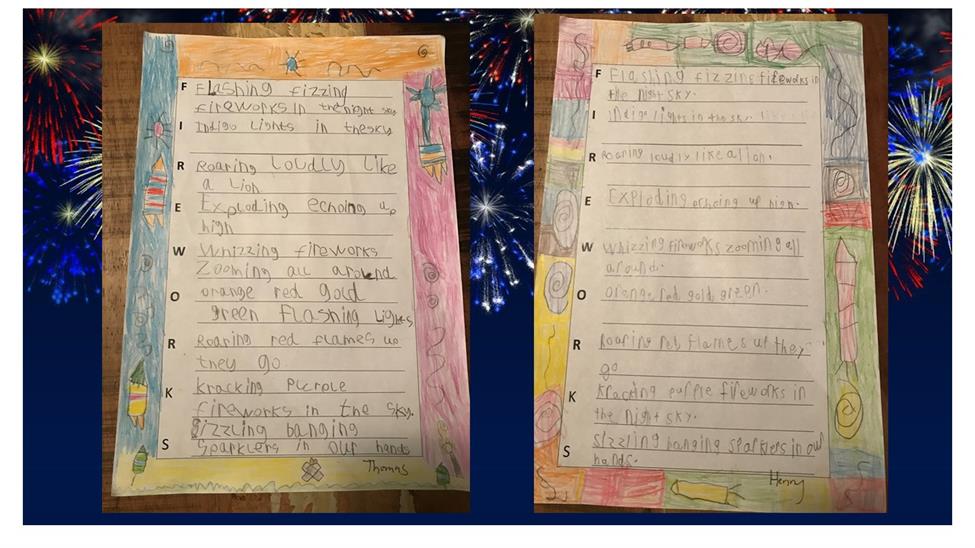 F Flashing fizzing
fireworks in the night sky
I Indigo Lights in the sky
R Roaring Loudly Like
a Lion
E Exploding echoing up
high
W Whizzing fireworks
Zooming all around
O orange red gold
green Flashing Lights
R Roaring red flames up
they go
K kracking Purple
fireworks in the sky.
Sizzling banging
S Sparklers in our hands
Thomas
F Flashing fizzing fireworks in
the night sky.
I Indigo lights in the sky.
R Roaring loudly like a lion.
E Exploding echoing up high.
W Whizzing fireworks zooming all
around.
O orange red gold green.
R Roaring red flames up they
go
K Kracking purple fireworks in
the night sky.
sizzling banging sparklers in our
S hands.
Henry